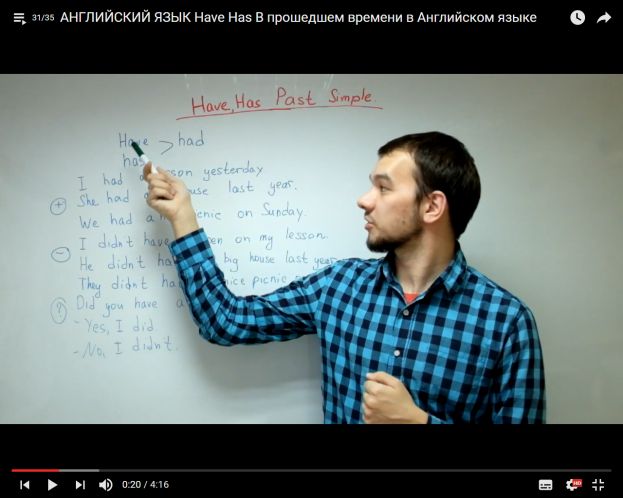 31/35 АНГЛИЙСКИЙ ЯЗЫК Have Has В прошедшем времени в Английском языке
Have, Has Past Simple.
Have > had
has
I had a lesson yesterday
She had a house last year.
We had a picnic on Sunday.
I didn't have on my lesson.
He didn't big house last year
They didn't nice picnic
Did you have a
- Yes, I did.
- No, I didn't.
0:20 / 4:16
HD